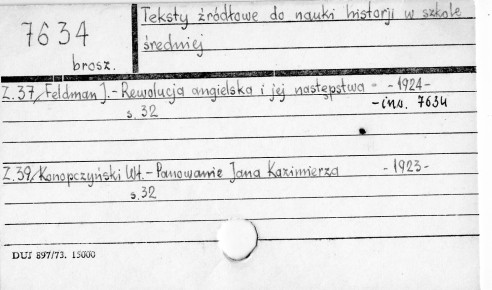 7634
brosz.
Teksty źródłowe do nauki historji w szkole
średniej
Z.37/Feldman J.-Rewolucja angielska i jej następstwa - -1924-
s.32
-inw. 7634
Z.39/Konopczyński Wł.-Panowanie Jana Kazimierza -1923-
s.32
DUJ 897/73. 15000